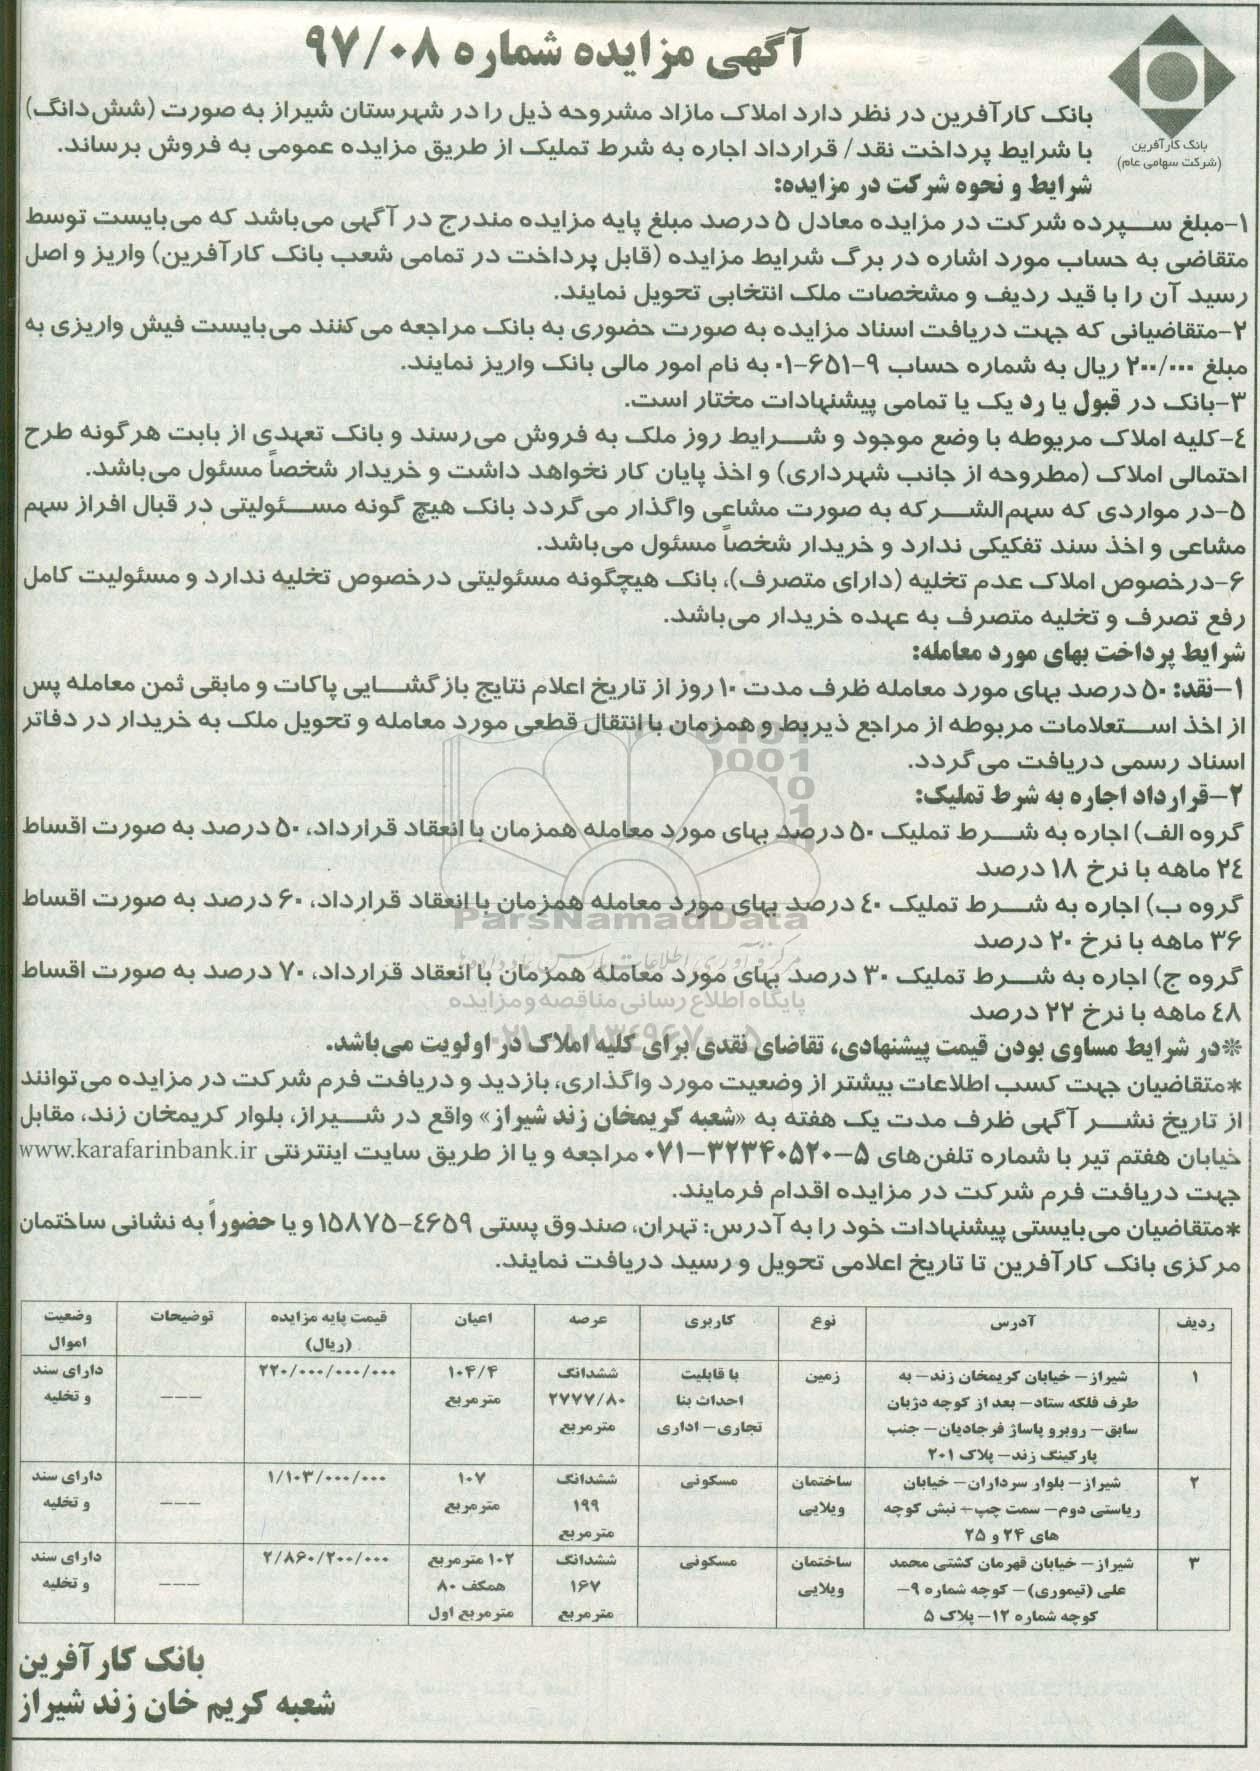 آگهی مزایده شماره ۹۷/۰۸
بانک کارآفرین
(شرکت سهامی عام)
بانک کارآفرین در نظر دارد املاک مازاد مشروحه ذیل را در شهرستان شیراز به صورت (شش‌دانگ)
با شرایط پرداخت نقد/ قرارداد اجاره به شرط تملیک از طریق مزایده عمومی به فروش برساند.
شرایط و نحوه شرکت در مزایده:
۱-مبلغ سپرده شرکت در مزایده معادل ۵ درصد مبلغ پایه مزایده مندرج در آگهی می‌باشد که می‌بایست توسط
متقاضی به حساب مورد اشاره در برگ شرایط مزایده (قابل پرداخت در تمامی شعب بانک کارآفرین) واریز و اصل
رسید آن را با قید ردیف و مشخصات ملک انتخابی تحویل نمایند.
۲-متقاضیانی که جهت دریافت اسناد مزایده به صورت حضوری به بانک مراجعه می‌کنند می‌بایست فیش واریزی به
مبلغ ۲۰۰/۰۰۰ ریال به شماره حساب ۹-۶۵۱-۰۱ به نام امور مالی بانک واریز نمایند.
۳-بانک در قبول یا رد یک یا تمامی پیشنهادات مختار است.
۴-کلیه املاک مربوطه با وضع موجود و شرایط روز ملک به فروش می‌رسند و بانک تعهدی از بابت هرگونه طرح
احتمالی املاک (مطروحه از جانب شهرداری) و اخذ پایان کار نخواهد داشت و خریدار شخصاً مسئول می‌باشد.
۵-در مواردی که سهم‌الشرکه به صورت مشاعی واگذار می‌گردد بانک هیچ گونه مسئولیتی در قبال افراز سهم
مشاعی و اخذ سند تفکیکی ندارد و خریدار شخصاً مسئول می‌باشد.
۶-درخصوص املاک عدم تخلیه (دارای متصرف)، بانک هیچگونه مسئولیتی درخصوص تخلیه ندارد و مسئولیت کامل
رفع تصرف و تخلیه متصرف به عهده خریدار می‌باشد.
شرایط پرداخت بهای مورد معامله:
۱-نقد: ۵۰ درصد بهای مورد معامله ظرف مدت ۱۰ روز از تاریخ اعلام نتایج بازگشایی پاکات و مابقی ثمن معامله پس
از اخذ استعلامات مربوطه از مراجع ذیربط و همزمان با انتقال قطعی مورد معامله و تحویل ملک به خریدار در دفاتر
اسناد رسمی دریافت می‌گردد.
۲-قرارداد اجاره به شرط تملیک:
گروه الف) اجاره به شرط تملیک ۵۰ درصد بهای مورد معامله همزمان با انعقاد قرارداد، ۵۰ درصد به صورت اقساط
۲۴ ماهه با نرخ ۱۸ درصد
گروه ب) اجاره به شرط تملیک ۴۰ درصد بهای مورد معامله همزمان با انعقاد قرارداد، ۶۰ درصد به صورت اقساط
۳۶ ماهه با نرخ ۲۰ درصد
گروه ج) اجاره به شرط تملیک ۳۰ درصد بهای مورد معامله همزمان با انعقاد قرارداد، ۷۰ درصد به صورت اقساط
۴۸ ماهه با نرخ ۲۲ درصد
ParsNamadData
پایگاه اطلاع رسانی مناقصه و مزایده
*در شرایط مساوی بودن قیمت پیشنهادی، تقاضای نقدی برای کلیه املاک در اولویت می‌باشد.
*متقاضیان جهت کسب اطلاعات بیشتر از وضعیت مورد واگذاری، بازدید و دریافت فرم شرکت در مزایده می‌توانند
از تاریخ نشر آگهی ظرف مدت یک هفته به «شعبه کریمخان زند شیراز» واقع در شیراز، بلوار کریمخان زند، مقابل
خیابان هفتم تیر با شماره تلفن‌های ۵-۳۲۳۴۰۵۲۰-۰۷۱ مراجعه و یا از طریق سایت اینترنتی www.karafarinbank.ir
جهت دریافت فرم شرکت در مزایده اقدام فرمایند.
*متقاضیان می‌بایستی پیشنهادات خود را به آدرس: تهران، صندوق پستی ۴۶۵۹-۱۵۸۷۵ و یا حضوراً به نشانی ساختمان
مرکزی بانک کارآفرین تا تاریخ اعلامی تحویل و رسید دریافت نمایند.
ردیف آدرس نوع کاربری عرصه اعیان قیمت پایه مزایده (ریال) توضیحات وضعیت اموال
۱ شیراز- خیابان کریمخان زند- به طرف فلکه ستاد- بعد از کوچه دژبان سابق- روبرو پاساژ فرجادیان- جنب پارکینگ زند- پلاک ۲۰۱ زمین با قابلیت احداث بنا تجاری- اداری ششدانگ ۲۷۷۷/۸۰ مترمربع ۱۰۴/۴ مترمربع ۲۲۰/۰۰۰/۰۰۰/۰۰۰ ––– دارای سند و تخلیه
۲ شیراز- بلوار سرداران- خیابان ریاستی دوم- سمت چپ- نبش کوچه های ۲۴ و ۲۵ ساختمان ویلایی مسکونی ششدانگ ۱۹۹ مترمربع ۱۰۷ مترمربع ۱/۱۰۳/۰۰۰/۰۰۰ ––– دارای سند و تخلیه
۳ شیراز- خیابان قهرمان کشتی محمد علی (تیموری)- کوچه شماره ۹- کوچه شماره ۱۲- پلاک ۵ ساختمان ویلایی مسکونی ششدانگ ۱۶۷ مترمربع ۱۰۲ مترمربع همکف ۸۰ مترمربع اول ۲/۸۶۰/۲۰۰/۰۰۰ ––– دارای سند و تخلیه
بانک کارآفرین
شعبه کریم خان زند شیراز